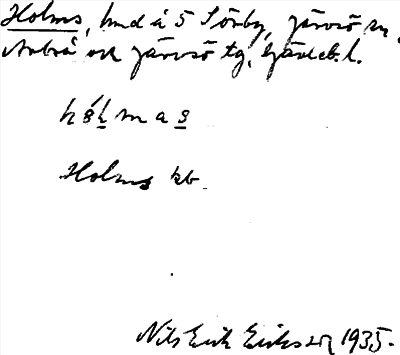 Holms, hmd å 5 Sörby, Järvsö sn,
Arbrå ock Järvsö tg, Gävleb. l.
hólmas
Holms kb
Nils Erik Eriksson 1935.